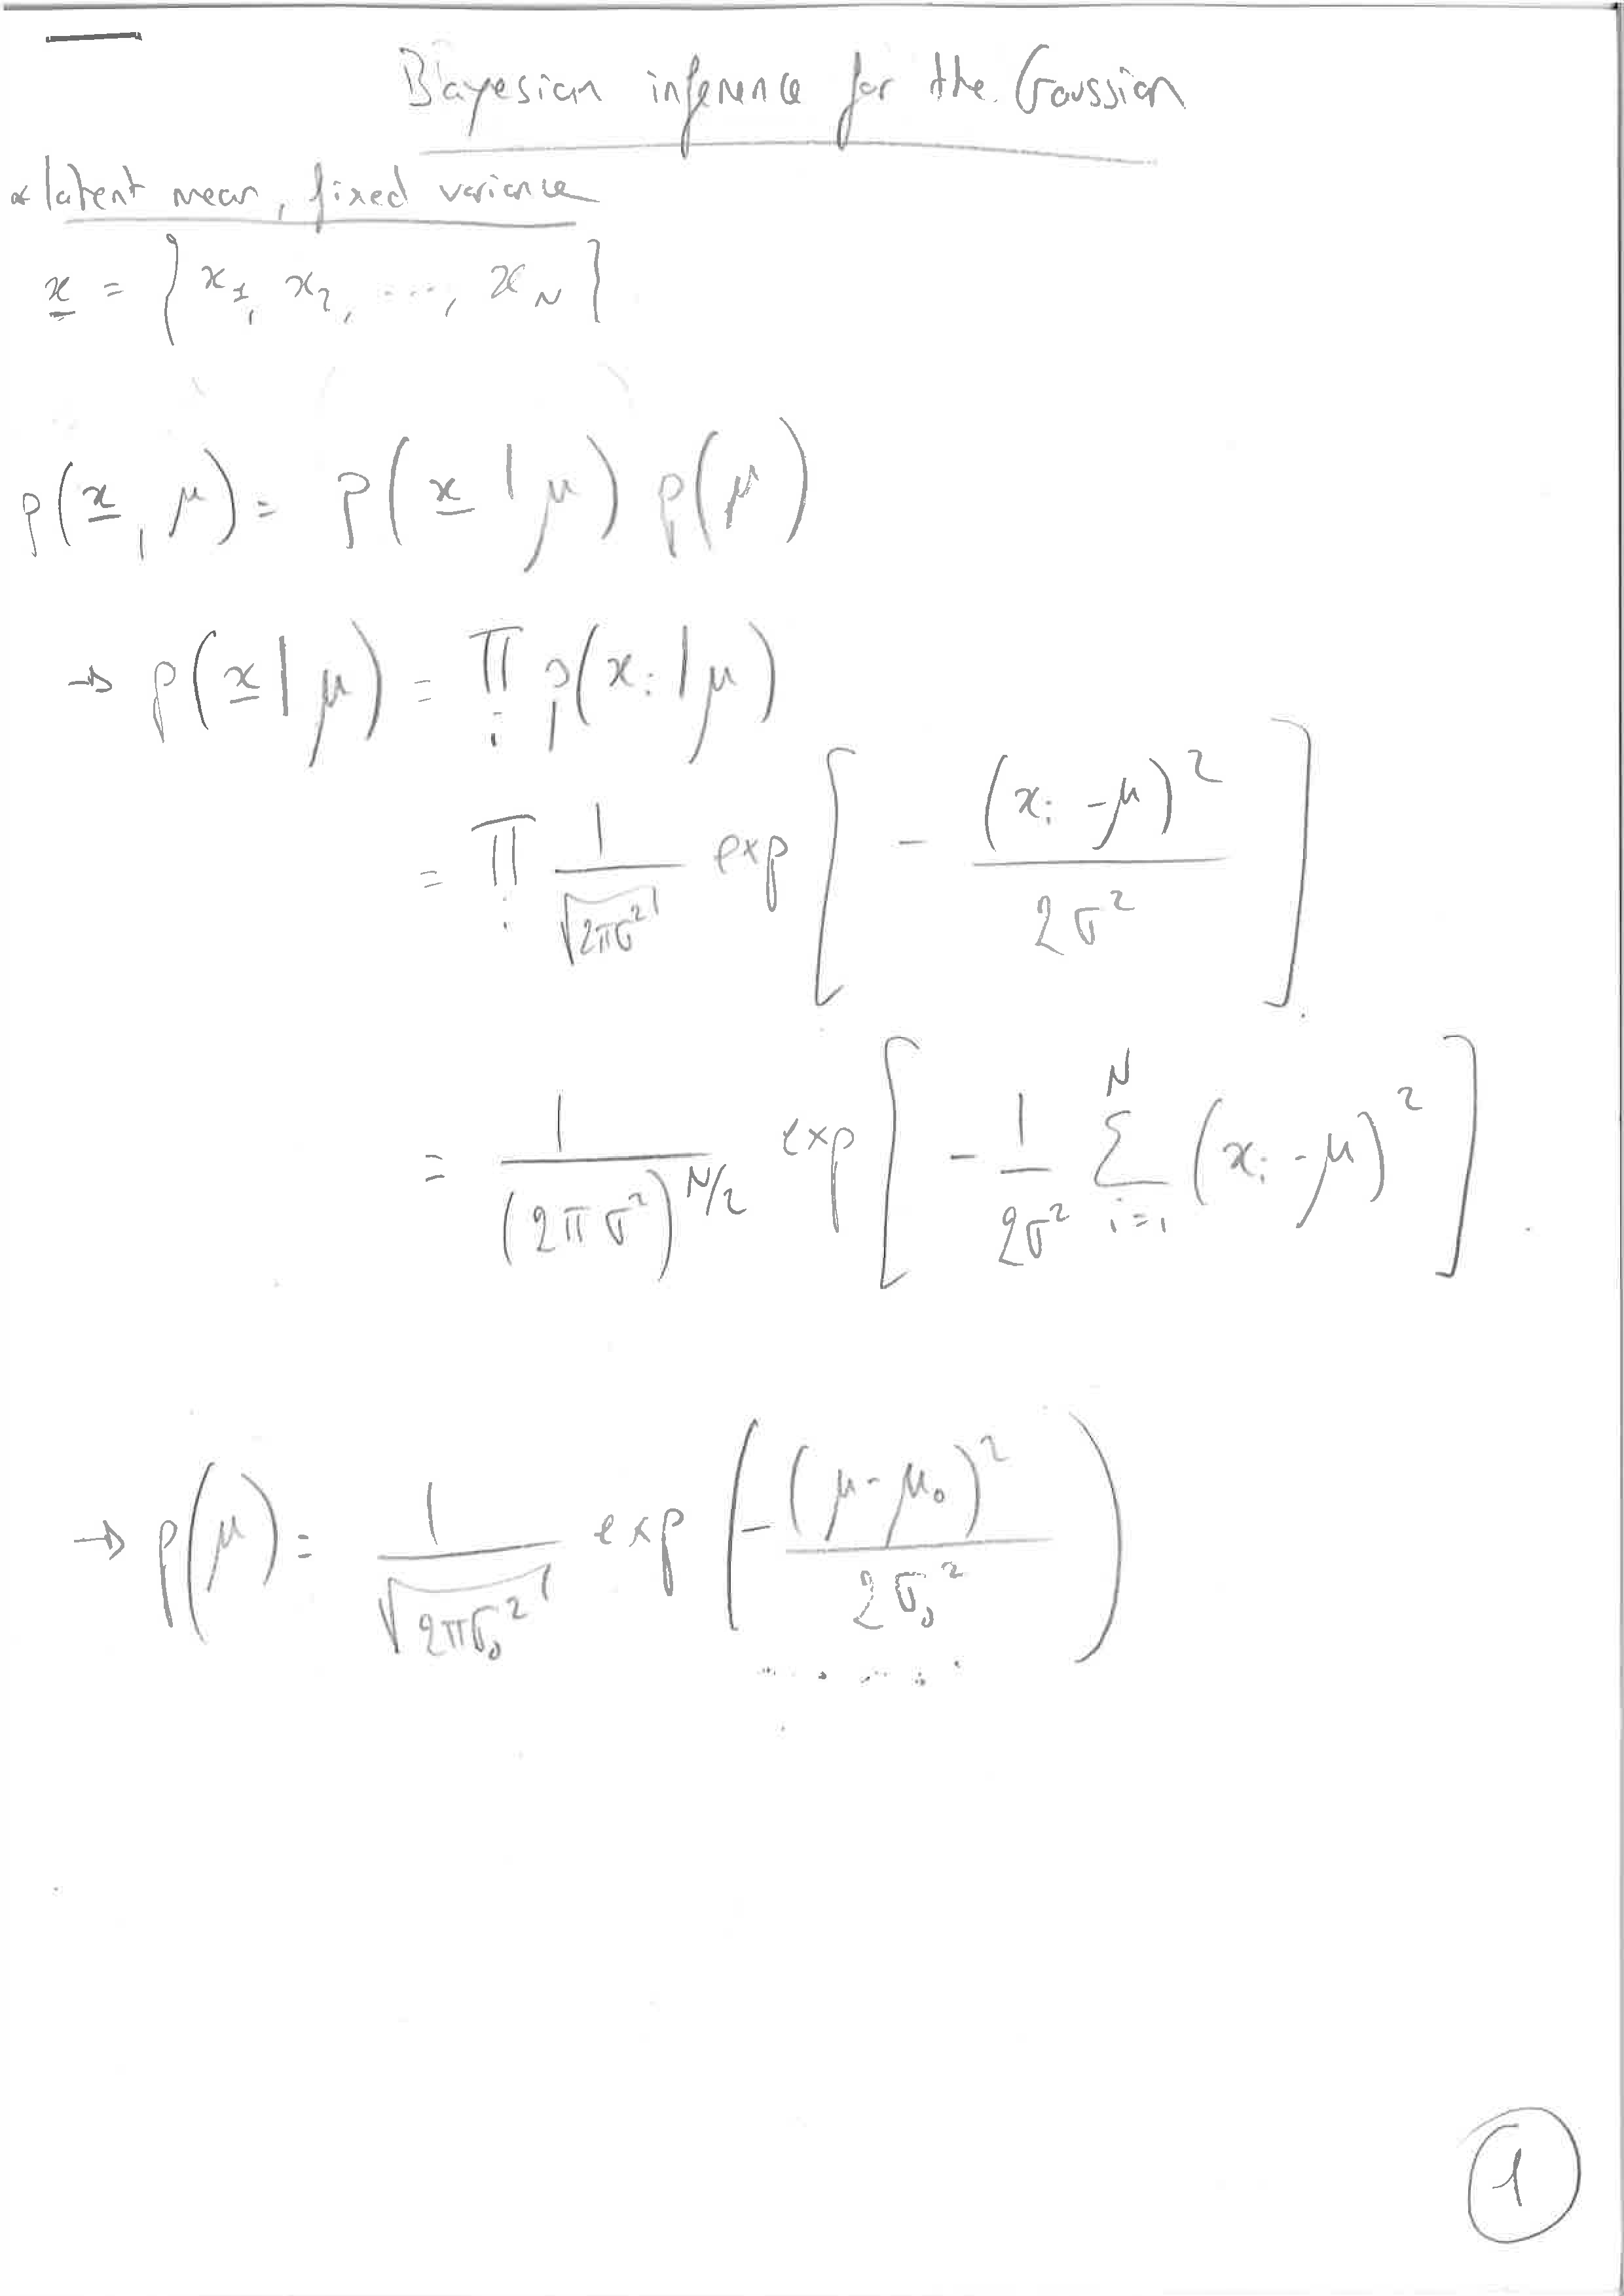 Bayesian inference for the Gaussian
latent mean, fixed variance
x = { x₁, x₂, ..., x_N }
p(x, μ) = p(x | μ) p(μ)
→ p(x | μ) = ∏_i p(x_i | μ)
= ∏_i 1/√(2πσ²) exp[ - (x_i - μ)² / 2σ² ]
= 1/(2πσ²)^(N/2) exp[ - 1/2σ² ∑_{i=1}^N (x_i - μ)² ]
→ p(μ) = 1/√(2πσ₀²) exp( - (μ - μ₀)² / 2σ₀² )
1